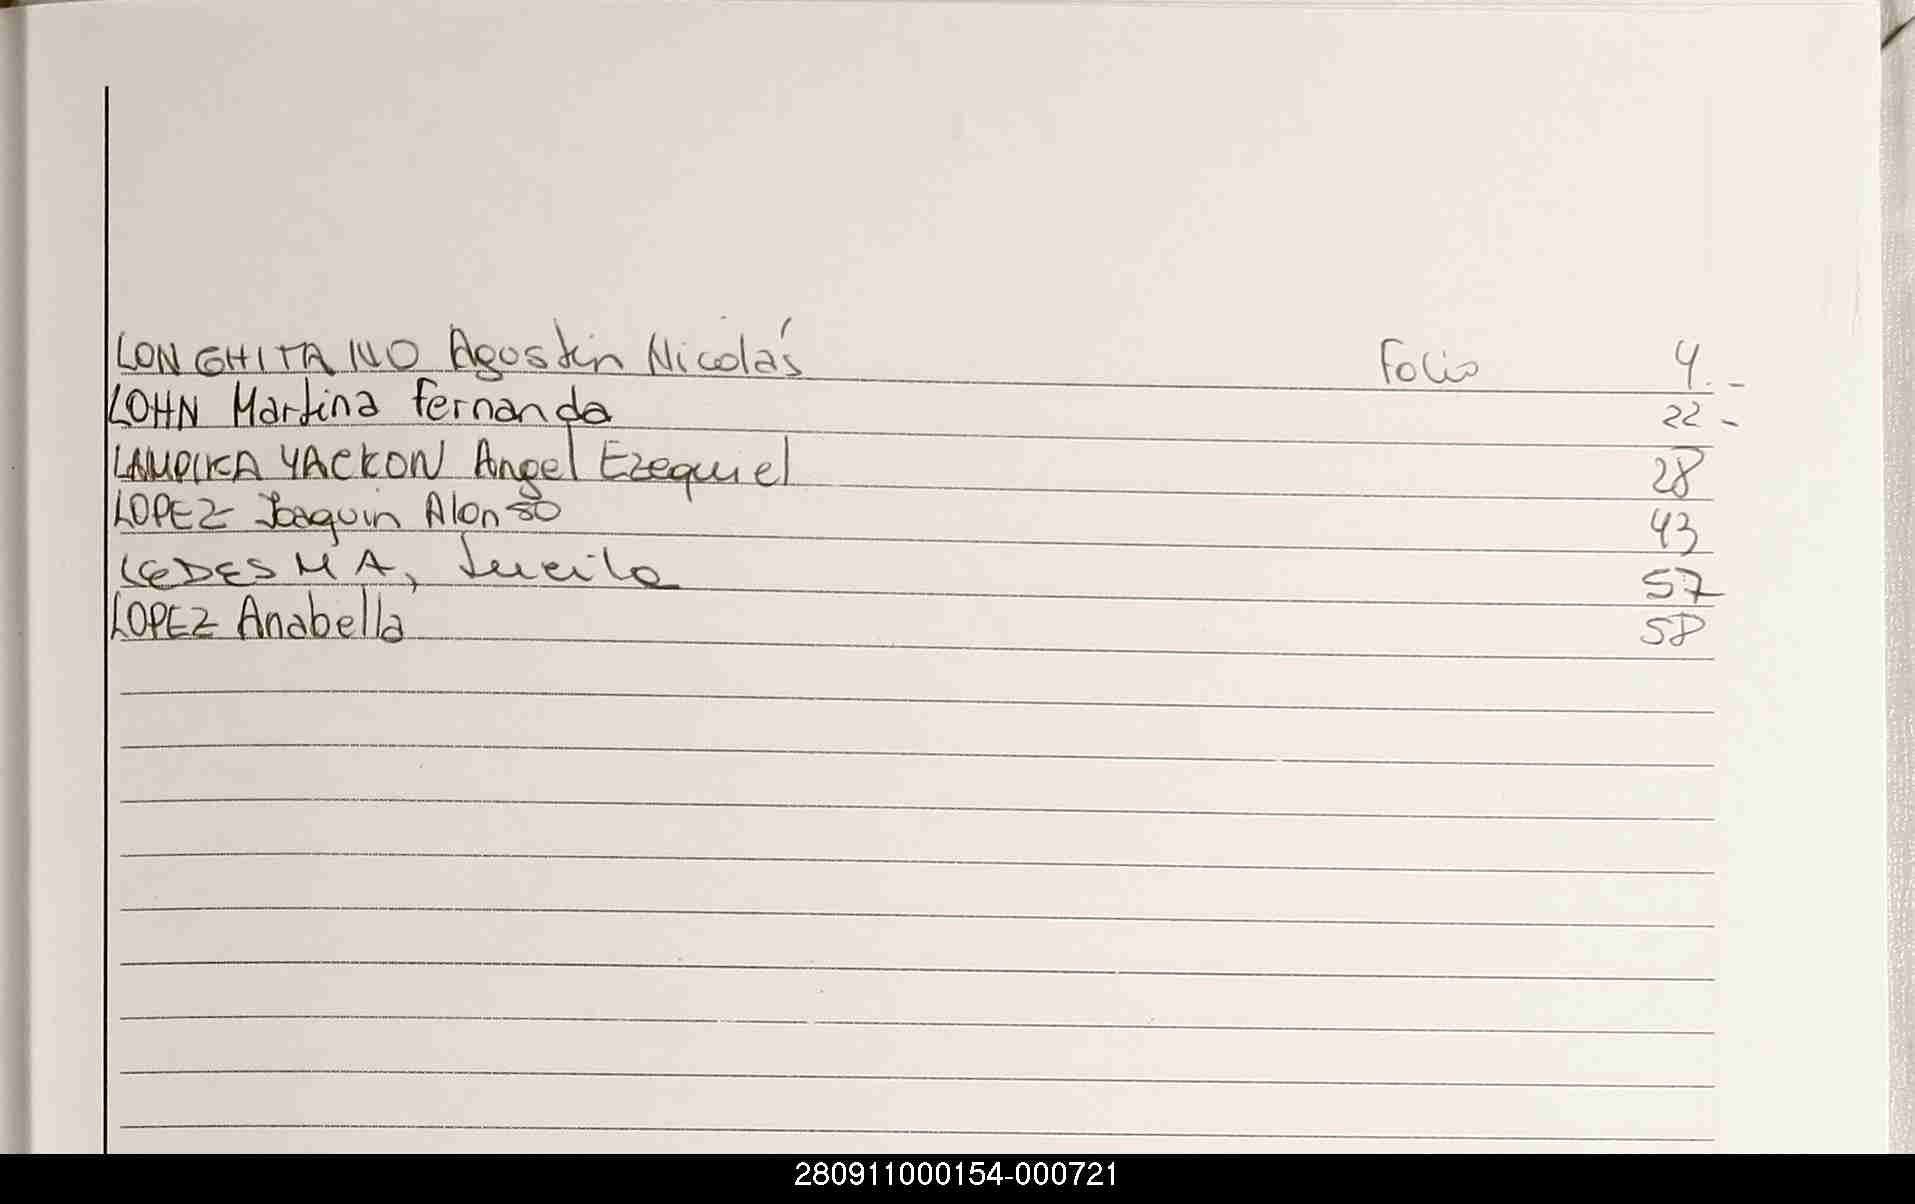 LONGHITANO Agustin Nicolás Folio 4.-
LOHN Martina Fernanda 22-
YACKON Angel Ezequiel 28
LOPEZ Joaquin Alonso 43
LEDESMA, Lucila 57
LOPEZ Anabella 58
280911000154-000721